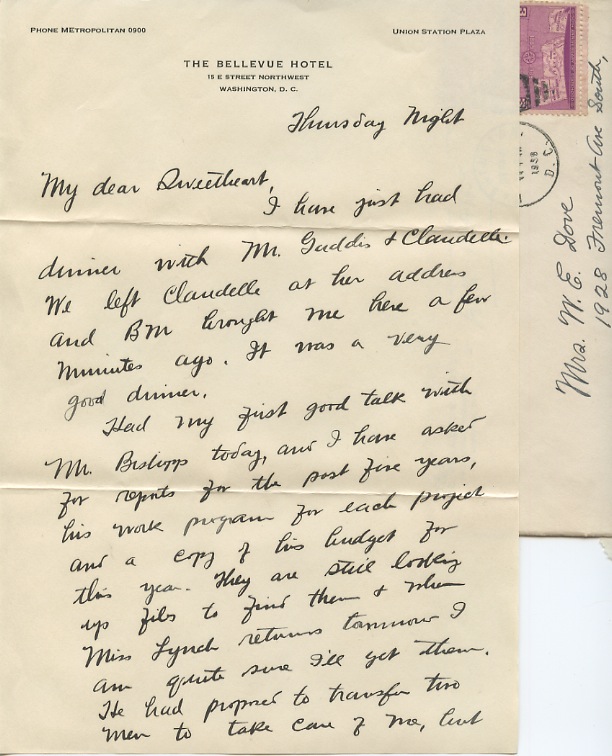 PHONE METROPOLITAN 0900
UNION STATION PLAZA
THE BELLEVUE HOTEL
15 E STREET NORTHWEST
WASHINGTON, D. C.
Thursday Night
My dear Sweetheart,
I have just had
dinner with Mr. Gaddis & Claudelle.
We left Claudelle at her address
and BM brought me here a few
minutes ago. It was a very
good dinner.
Had my first good talk with
Mr. Bishopp today, and I have asked
for reports for the past five years,
his work program for each project
and a copy of his budget for
this year. They are still looking
up files to find them & when
Miss Lynch returns tomorrow I
am quite sure I'll get them.
He had proposed to transfer two
men to take care of me, but
1938
D. C.
Mrs. W. E. Dove
1928 Fremont Ave South,